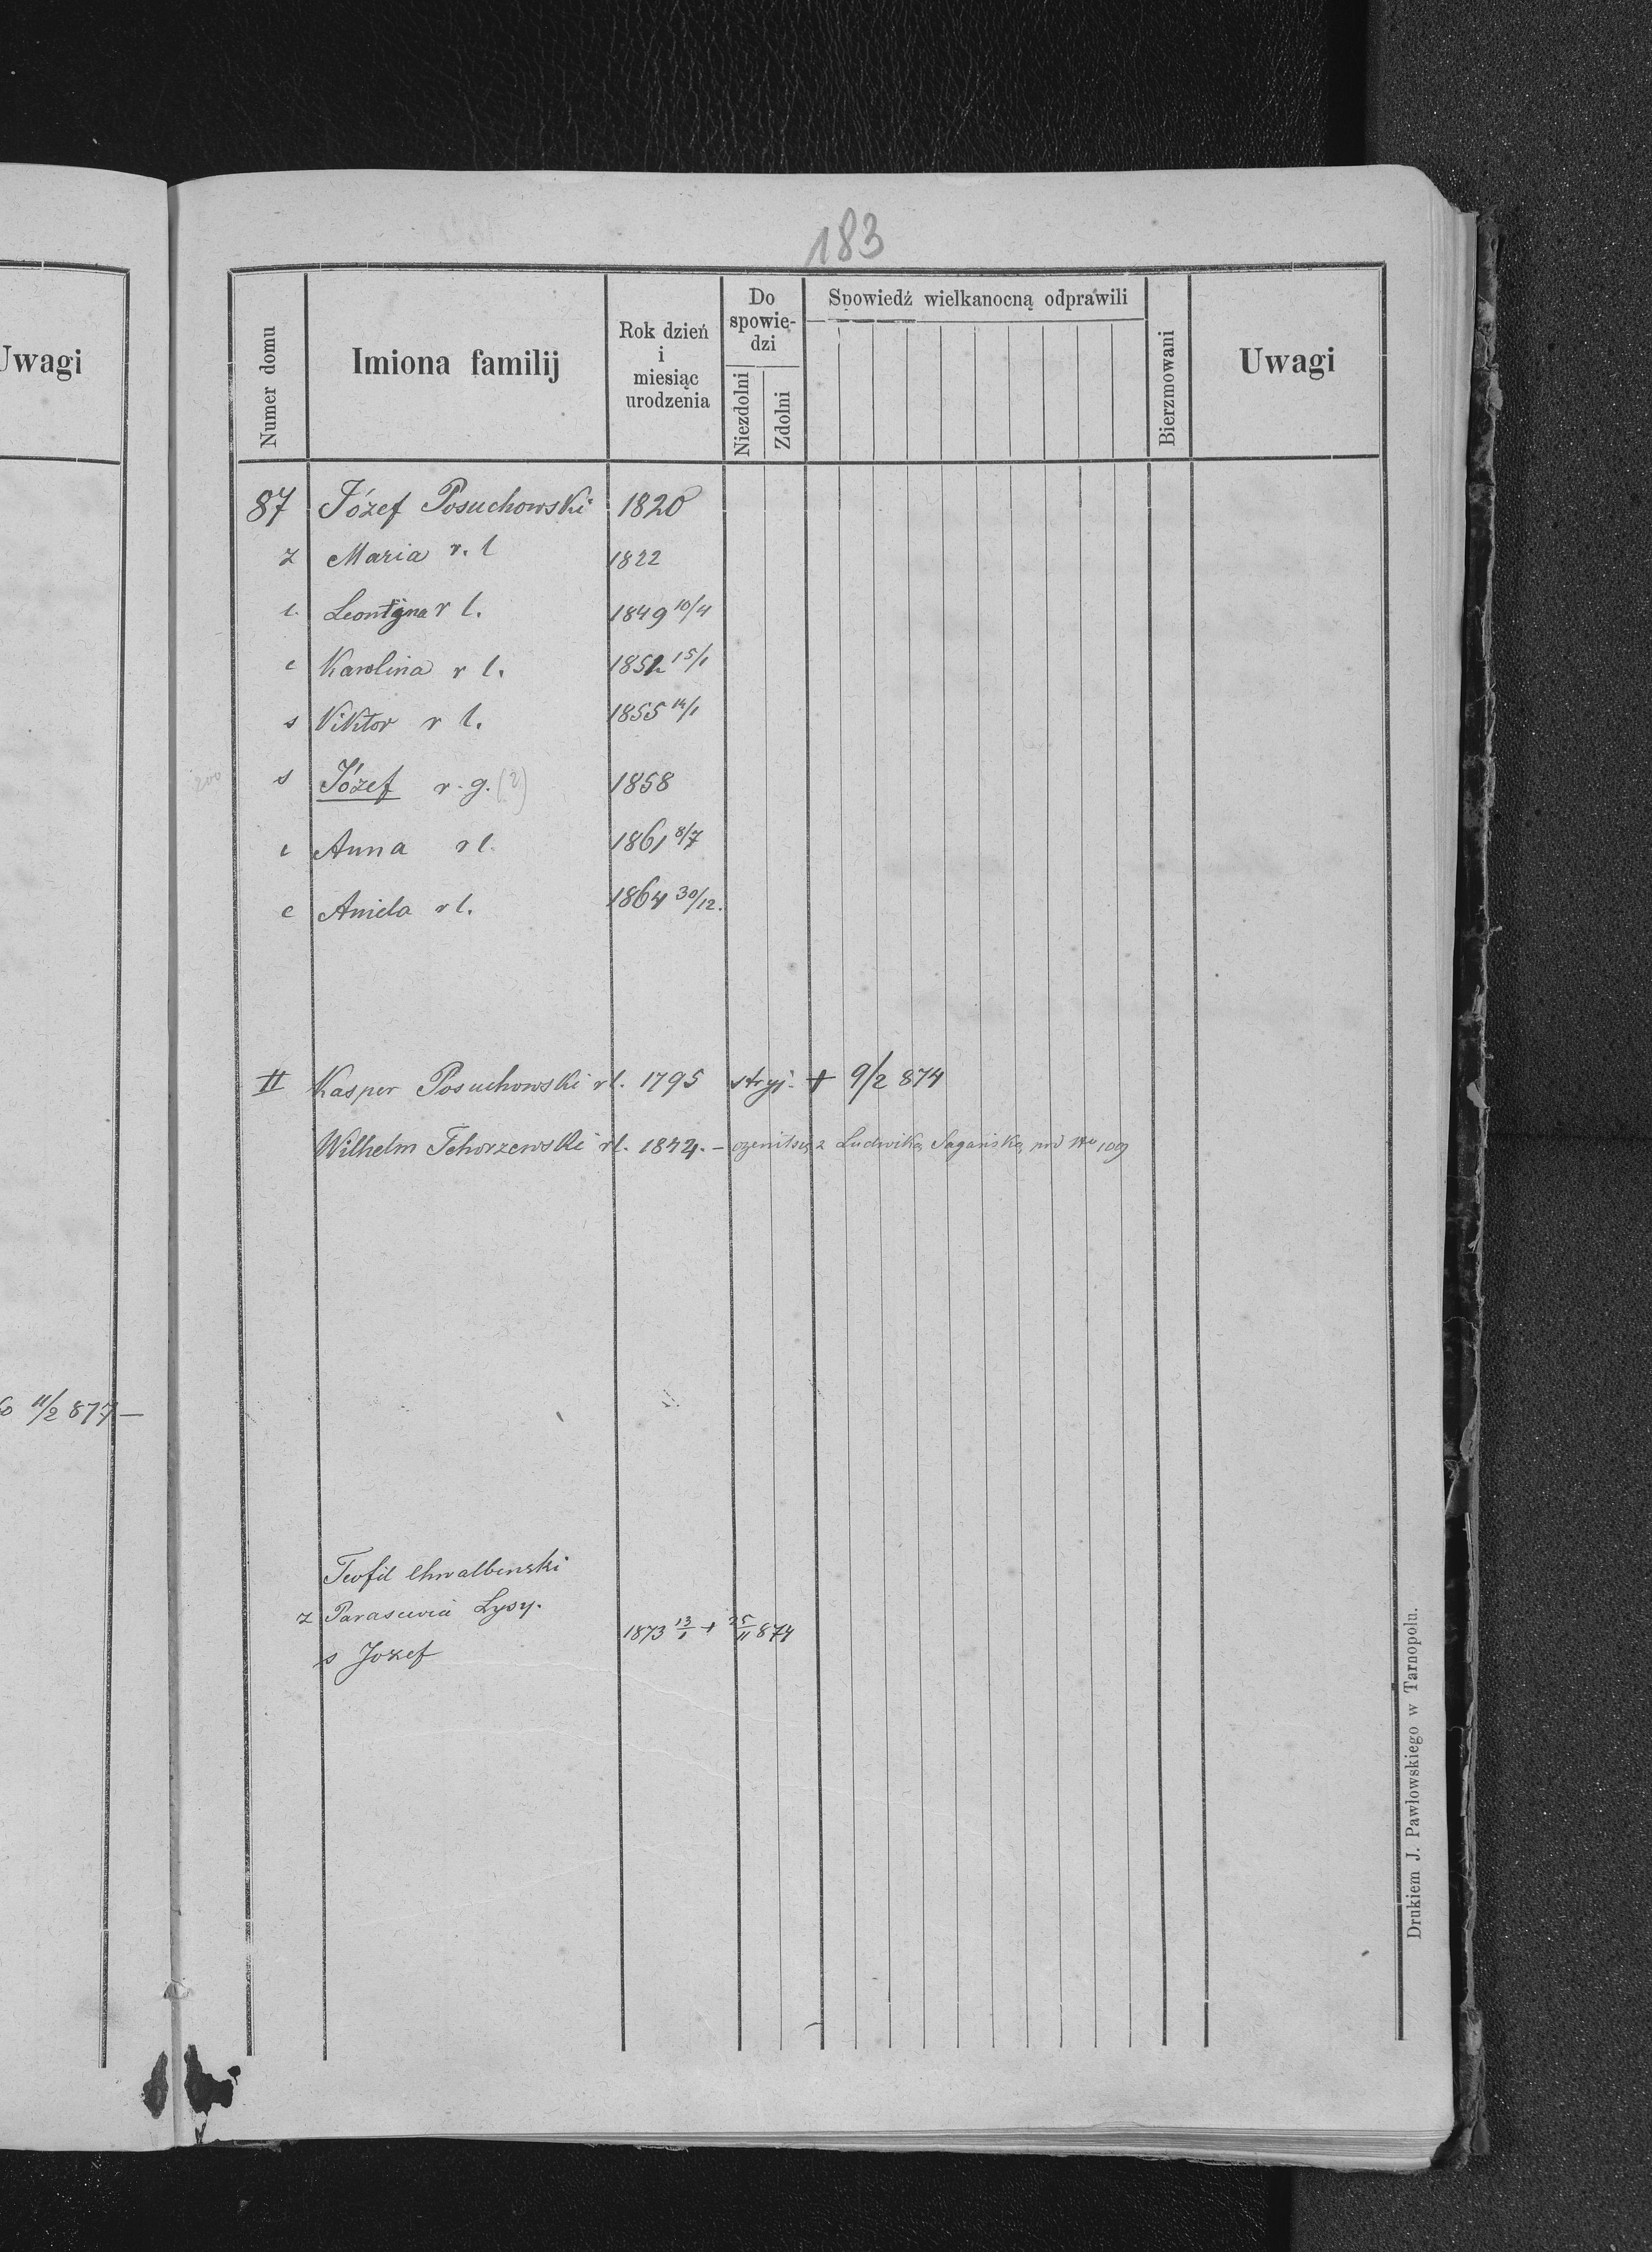 183
Uwagi
Numer domu
Imiona familij
Rok dzień i miesiąc urodzenia
Do spowiedzi
Niezdolni
Zdolni
Spowiedź wielkanocną odprawili
Bierzmowani
Uwagi
87 Józef Posuchowski 1820
z Maria r. l 1822
c. Leontyna r l. 1849 10/4
c Karolina r l. 1852 15/1
s Viktor r l. 1855 14/1
200 s Józef r. g. (?) 1858
c Anna r l. 1861 8/7
c Aniela r l. 1864 30/12.
II Kasper Posuchowski r l. 1795 stryj. + 9/2 874
Wilhelm Tchorzewski r l. 1842. – ożenił się z Ludwiką Sagańską pod Nro 109
11/2 877 —
Teofil Chwalbenski
z Parascevia Lysy.
s Jozef 1873 13/1 + 25/11 874
Drukiem J. Pawłowskiego w Tarnopolu.